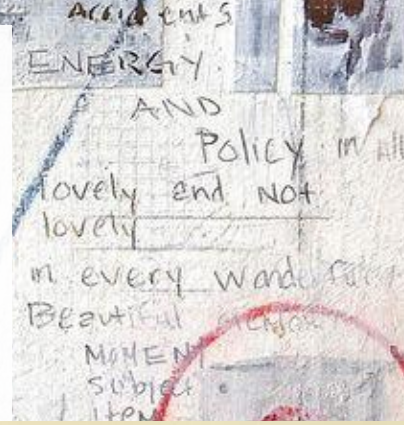 Accidents
ENERGY
AND
Policy in All
lovely and Not
lovely
in every wonderful
Beautiful
MOMENT
Subject
item